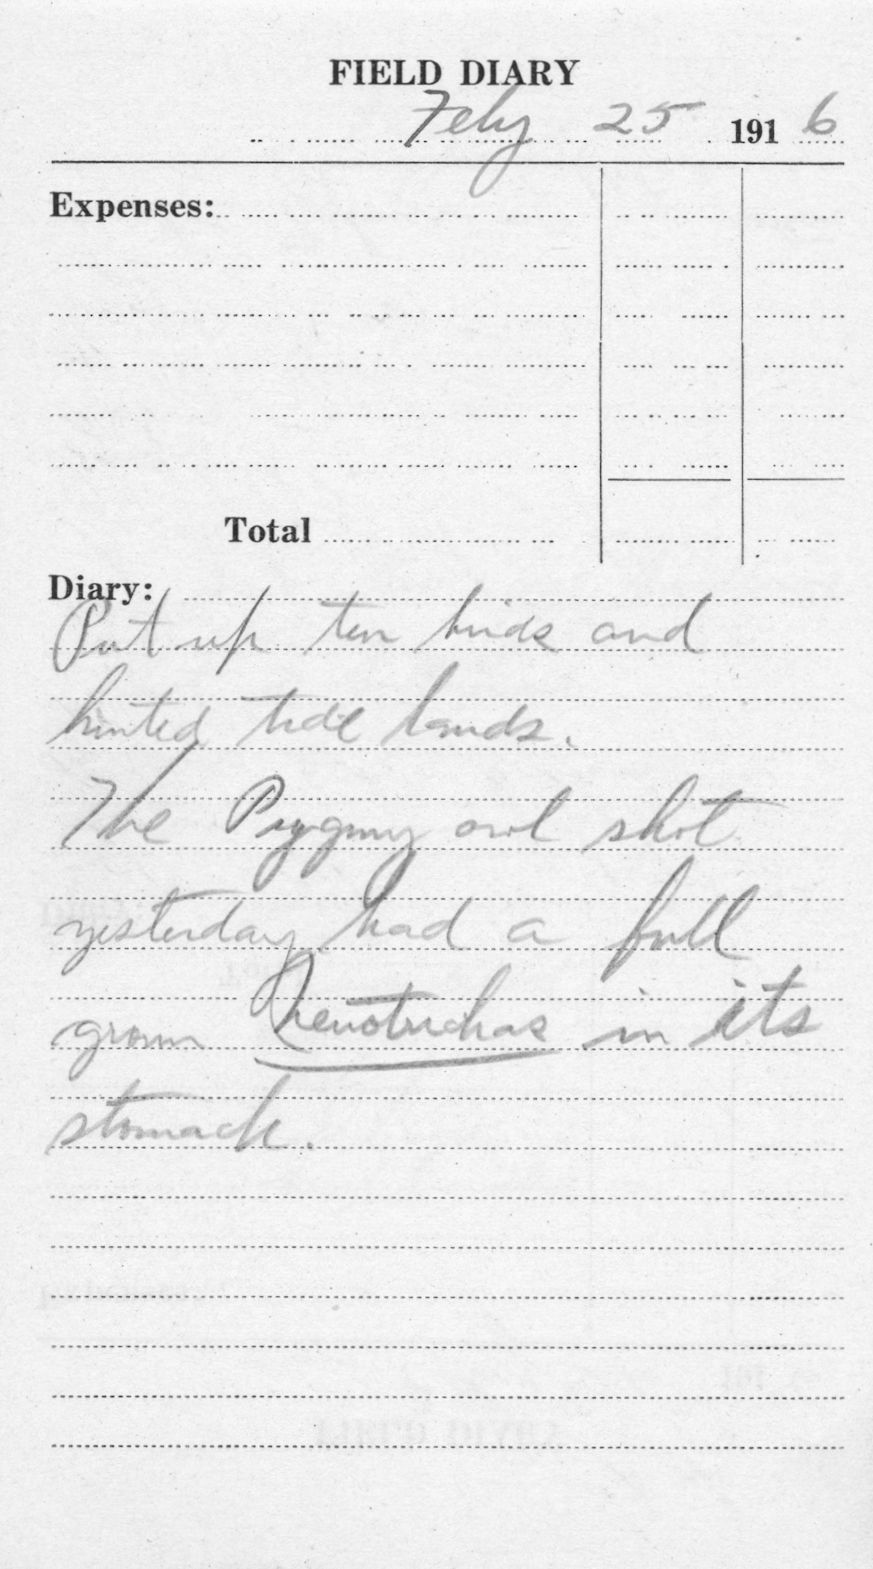 FIELD DIARY
Feby 25 1916
Expenses:
Total
Diary:
Put up ten birds and
hunted tide lands.
The Pygmy owl shot
yesterday had a full
grown in its
stomach.